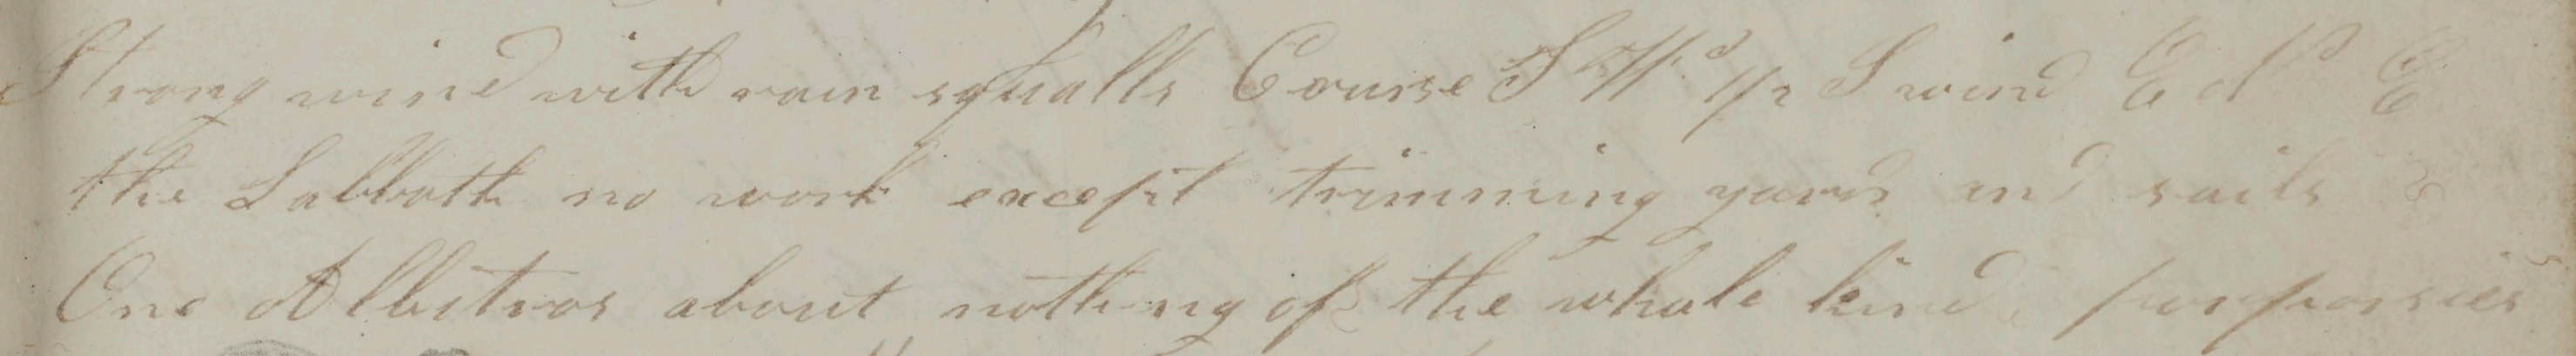 Strong wind with rain squalls Course S W d 1/2 S wind E d E
the Sabbath no work except trimming yards and sails &
One Albitros about nothing of the whale kind porporsies